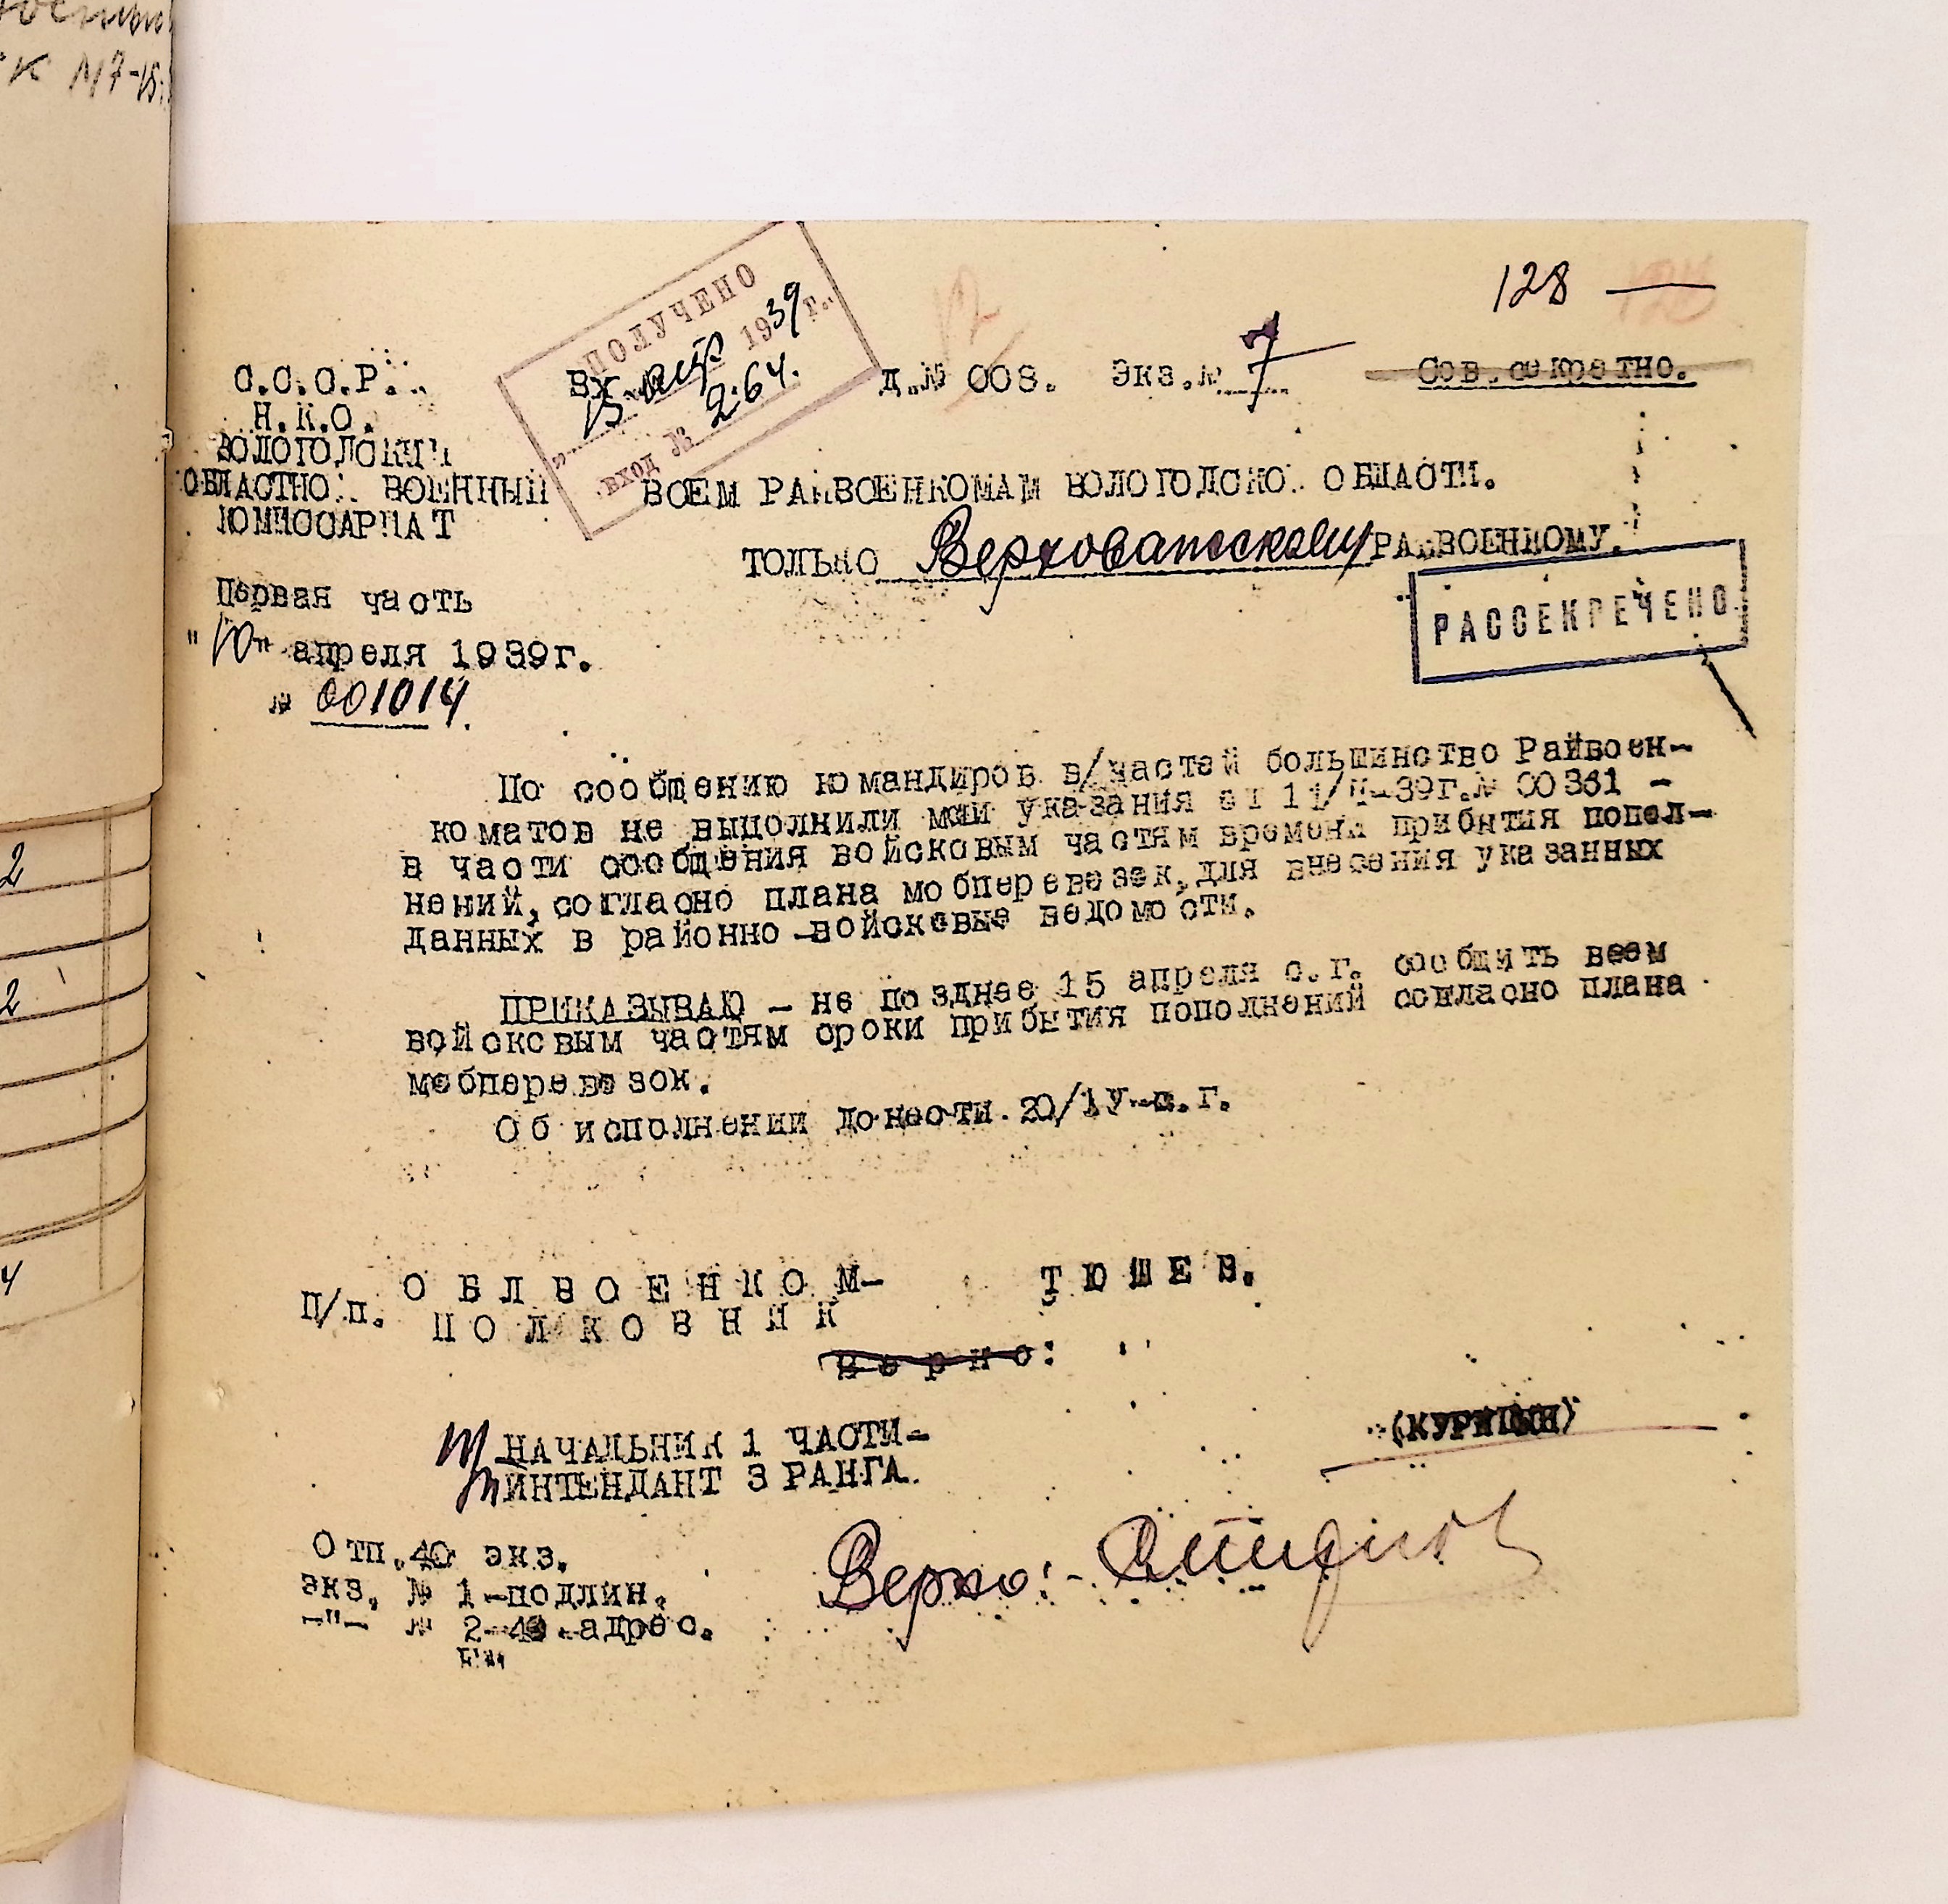 К М7-15.
128
ПОЛУЧЕНО
1939 г.
ВХОД № 264.
Вх. д.№ 008. Экз.№ 7 Сов.секретно.
С.С.С.Р.
Н.К.О.
ВОЛОГОДСКИЙ
ОБЛАСТНОЙ ВОЕННЫЙ
КОМИССАРИАТ
ВСЕМ РАЙВОЕНКОМАМ ВОЛОГОДСКОЙ ОБЛАСТИ.
ТОЛЬКО Верховажскому РАЙВОЕНКОМУ.
РАССЕКРЕЧЕНО
Первая часть
"10" апреля 1939г.
№ 001014.
По сообщению командиров в/частей большинство Райвоен-
коматов не выполнили мои указания от 11/II-39г.№ 00361 -
в части сообщения войсковым частям времени прибытия попол-
нений, согласно плана мобперевозок, для внесения указанных
данных в районно-войсковые ведомости.
ПРИКАЗЫВАЮ - не позднее 15 апреля с.г. сообщить всем
войсковым частям сроки прибытия пополнений согласно плана
мобперевозок.
Об исполнении донести 20/1У-с.г.
П/п. ОБЛВОЕНКОМ- ТЮШЕВ.
ПОЛКОВНИК
Верно:
НАЧАЛЬНИК 1 ЧАСТИ-
ИНТЕНДАНТ 3 РАНГА. (КУРИЦЫН)
Верно:-
Отп.40 экз.
экз. № 1-подлин.
-"- № 2-40.-адрес.
2
2
4